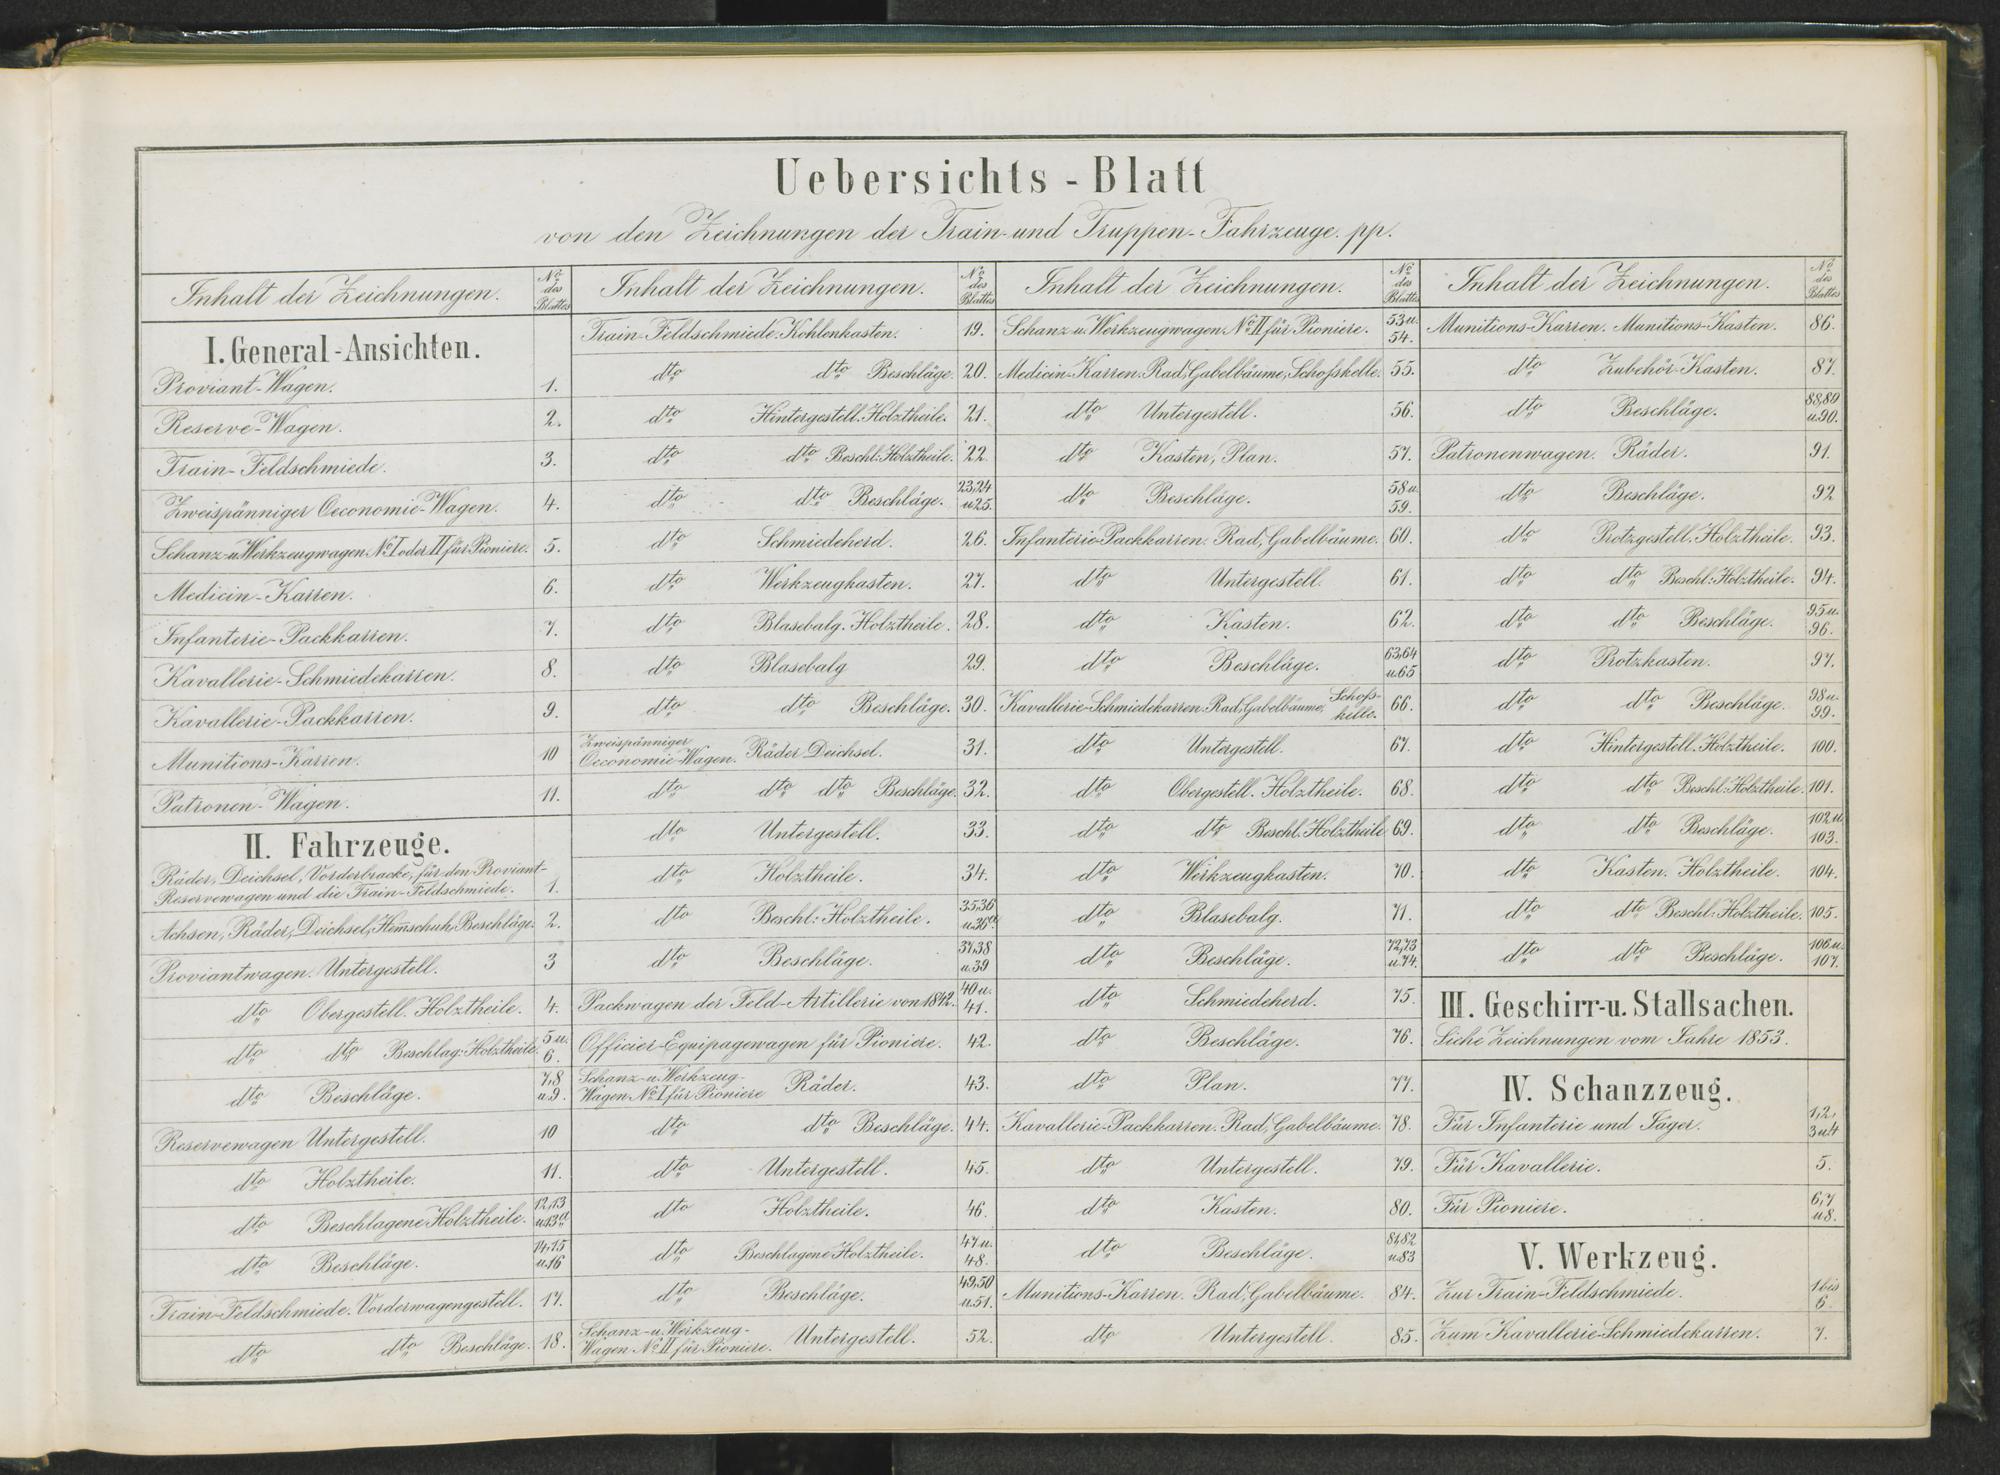 Uebersichts-Blatt
von den Zeichnungen der Train- und Truppen-Fahrzeuge. pp.
Inhalt der Zeichnungen. No des Blattes
I. General-Ansichten.
Proviant-Wagen. 1.
Reserve-Wagen. 2.
Train-Feldschmiede. 3.
Zweispänniger Oeconomie-Wagen. 4.
Schanz-u. Werkzeugwagen No I oder II für Pioniere. 5.
Medicin-Karren. 6.
Infanterie-Packkarren. 7.
Kavallerie-Schmiedekarren. 8.
Kavallerie-Packkarren. 9.
Munitions-Karren. 10
Patronen-Wagen. 11.
II. Fahrzeuge.
Räder, Deichsel, Vorderbracke, für den Proviant-
Reservewagen und die Train-Feldschmiede. 1.
Achsen, Räder, Deichsel, Hem̄schuh, Beschläge. 2.
Proviantwagen. Untergestell. 3
dto Obergestell. Holztheile. 4.
dto dto Beschlag: Holztheile. 5 u. 6.
dto Beschläge. 7,8 u. 9.
Reservewagen Untergestell. 10
dto Holztheile. 11.
dto Beschlagene Holztheile. 12,13 u. 13a
dto Beschläge. 14,15 u. 16
Train-Feldschmiede. Vorderwagengestell. 17.
dto dto Beschläge. 18.
Inhalt der Zeichnungen. No des Blattes
Train-Feldschmiede. Kohlenkasten. 19.
dto dto Beschläge. 20.
dto Hintergestell. Holztheile. 21.
dto dto Beschl: Holztheile. 22
dto dto Beschläge. 23,24 u. 25.
dto Schmiedeherd. 26.
dto Werkzeugkasten. 27.
dto Blasebalg. Holztheile. 28.
dto Blasebalg 29.
dto dto Beschläge. 30.
Zweispänniger
Oeconomie-Wagen. Räder Deichsel. 31.
dto dto dto Beschläge. 32.
dto Untergestell. 33.
dto Holztheile. 34.
dto Beschl: Holztheile. 35,36 u. 36a
dto Beschläge. 37,38 u. 39
Packwagen der Feld-Artillerie von 1842. 40 u. 41.
Officier-Equipagewagen für Pioniere. 42.
Schanz-u. Werkzeug-
Wagen No I für Pioniere Räder. 43.
dto dto Beschläge. 44.
dto Untergestell. 45.
dto Holztheile. 46.
dto Beschlagene Holztheile. 47 u. 48.
dto Beschläge. 49,50 u. 51.
Schanz-u. Werkzeug-
Wagen No II für Pioniere. Untergestell. 52.
Inhalt der Zeichnungen. No des Blattes
Schanz u. Werkzeugwagen No II für Pioniere. 53 u. 54.
Medicin-Karren. Rad, Gabelbäume, Schoßkelle. 55.
dto Untergestell. 56.
dto Kasten, Plan. 57.
dto Beschläge. 58 u. 59.
Infanterie-Packkarren. Rad, Gabelbäume. 60.
dto Untergestell. 61.
dto Kasten. 62.
dto Beschläge. 63,64 u. 65
Kavallerie-Schmiedekarren. Rad, Gabelbäume, Schoß-
kelle. 66.
dto Untergestell. 67.
dto Obergestell. Holztheile. 68.
dto dto Beschl. Holztheile 69.
dto Werkzeugkasten. 70.
dto Blasebalg. 71.
dto Beschläge. 72,73 u. 74.
dto Schmiedeherd. 75.
dto Beschläge. 76.
dto Plan. 77.
Kavallerie-Packkarren. Rad, Gabelbäume. 78.
dto Untergestell. 79.
dto Kasten. 80.
dto Beschläge. 81,82 u. 83
Munitions-Karren. Rad, Gabelbäume. 84.
dto Untergestell. 85.
Inhalt der Zeichnungen. No des Blattes
Munitions-Karren. Munitions-Kasten. 86.
dto Zubehör-Kasten. 87.
dto Beschläge. 88,89 u. 90.
Patronenwagen. Räder. 91.
dto Beschläge. 92
dto Protzgestell. Holztheile. 93.
dto dto Beschl: Holztheile. 94.
dto dto Beschläge. 95 u. 96.
dto Protzkasten. 97.
dto dto Beschläge. 98 u. 99.
dto Hintergestell. Holztheile. 100.
dto dto Beschl: Holztheile. 101.
dto dto Beschläge. 102 u. 103.
dto Kasten. Holztheile. 104.
dto dto Beschl: Holztheile. 105.
dto dto Beschläge. 106 u. 107.
III. Geschirr-u. Stallsachen.
Siehe Zeichnungen vom Jahre 1853.
IV. Schanzzeug.
Für Infanterie und Jäger. 1,2, 3 u. 4
Für Kavallerie. 5.
Für Pioniere. 6,7 u. 8.
V. Werkzeug.
Zur Train-Feldschmiede. 1 bis 6.
Zum Kavallerie-Schmiedekarren. 7.